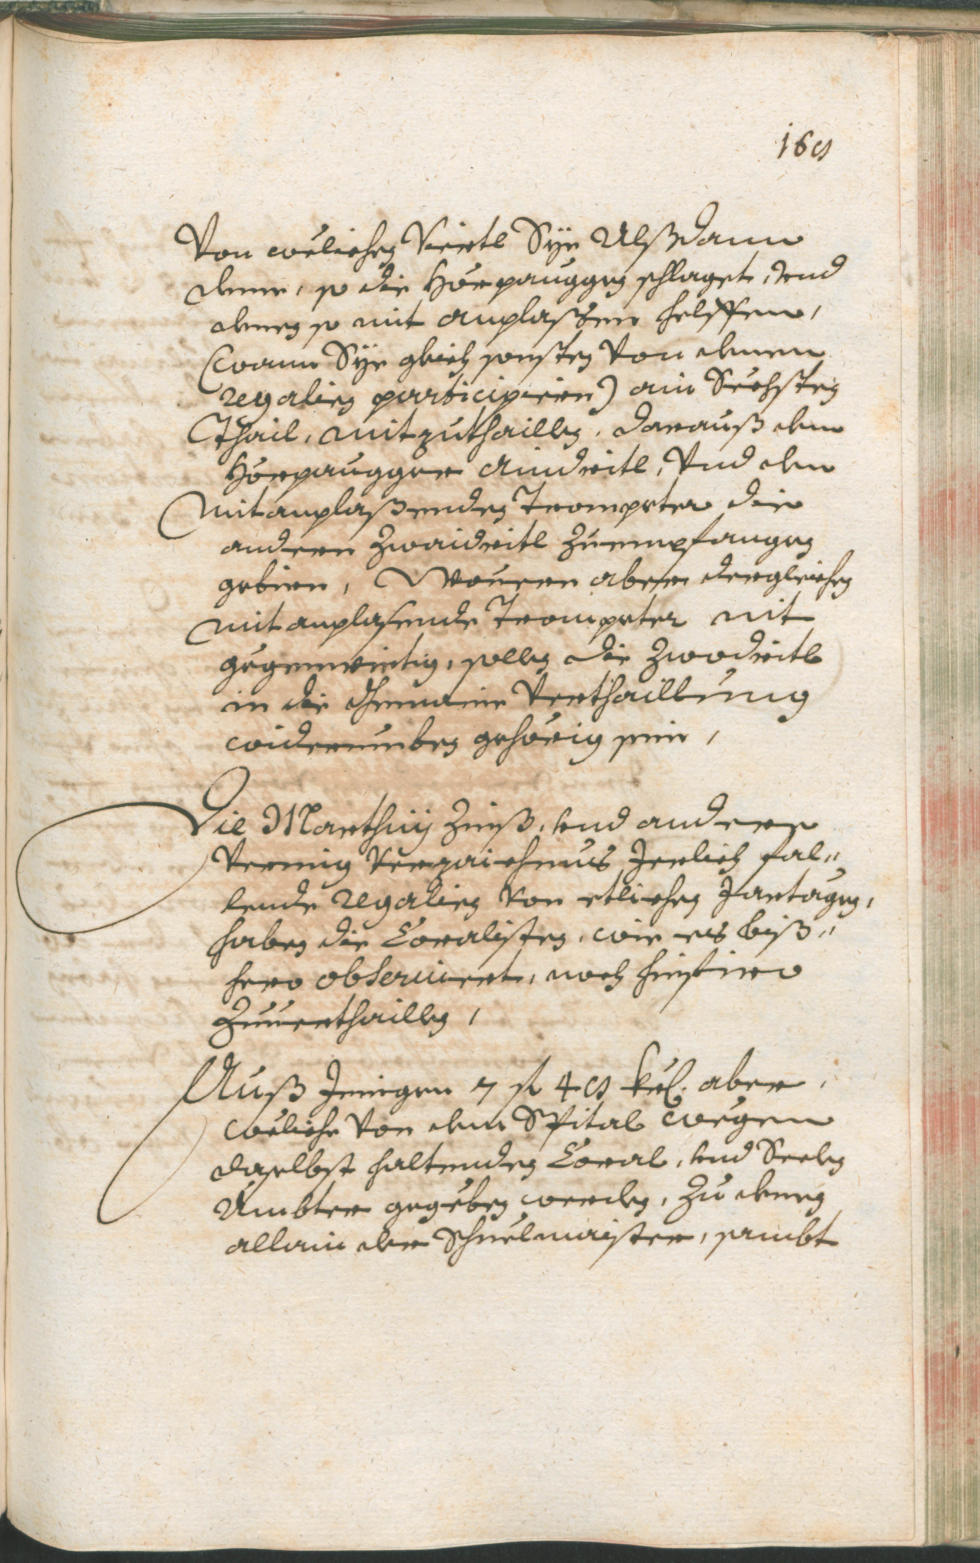 169
Von wölichen Viertl Sÿe Alßdann
deme, so die Hörpauggen schlaget, vnd
denen so mit anplaßen helffen,
(wann Sÿe gleich sonsten von denen
regalien participiern) ain Sechsten
Thail, mitzuthaillen, darauß dem
Hörpaugger Aindritl, Vnd dem
Mitanplaßenden Trompeter die
andern Zwaidritl Zuempfangen
gebiern, Weren aber dergleichen
mitanplasende Trompeter nit
gegenwirtig, sollen die Zwodritl
in die Gemaine Verthaillung
widerumben gehörig sein,
Die Marthinj Zinß, vnd anderer
Vermig Verzaichnus Jerlich fal„
lende regalien von etlichen Jartägen,
haben die Coralisten, wie es biß„
hero obseruiert, noch hinfiro
Zuuerthaillen,
Auß Jenigen 7 fl 49 kr. aber,
wöliche Von dem Spital wegen
daselbst haltenden Coral, vnd Seelen
Ambter gegeben werden, Zu denen
allain der Schuelmaister, sambt